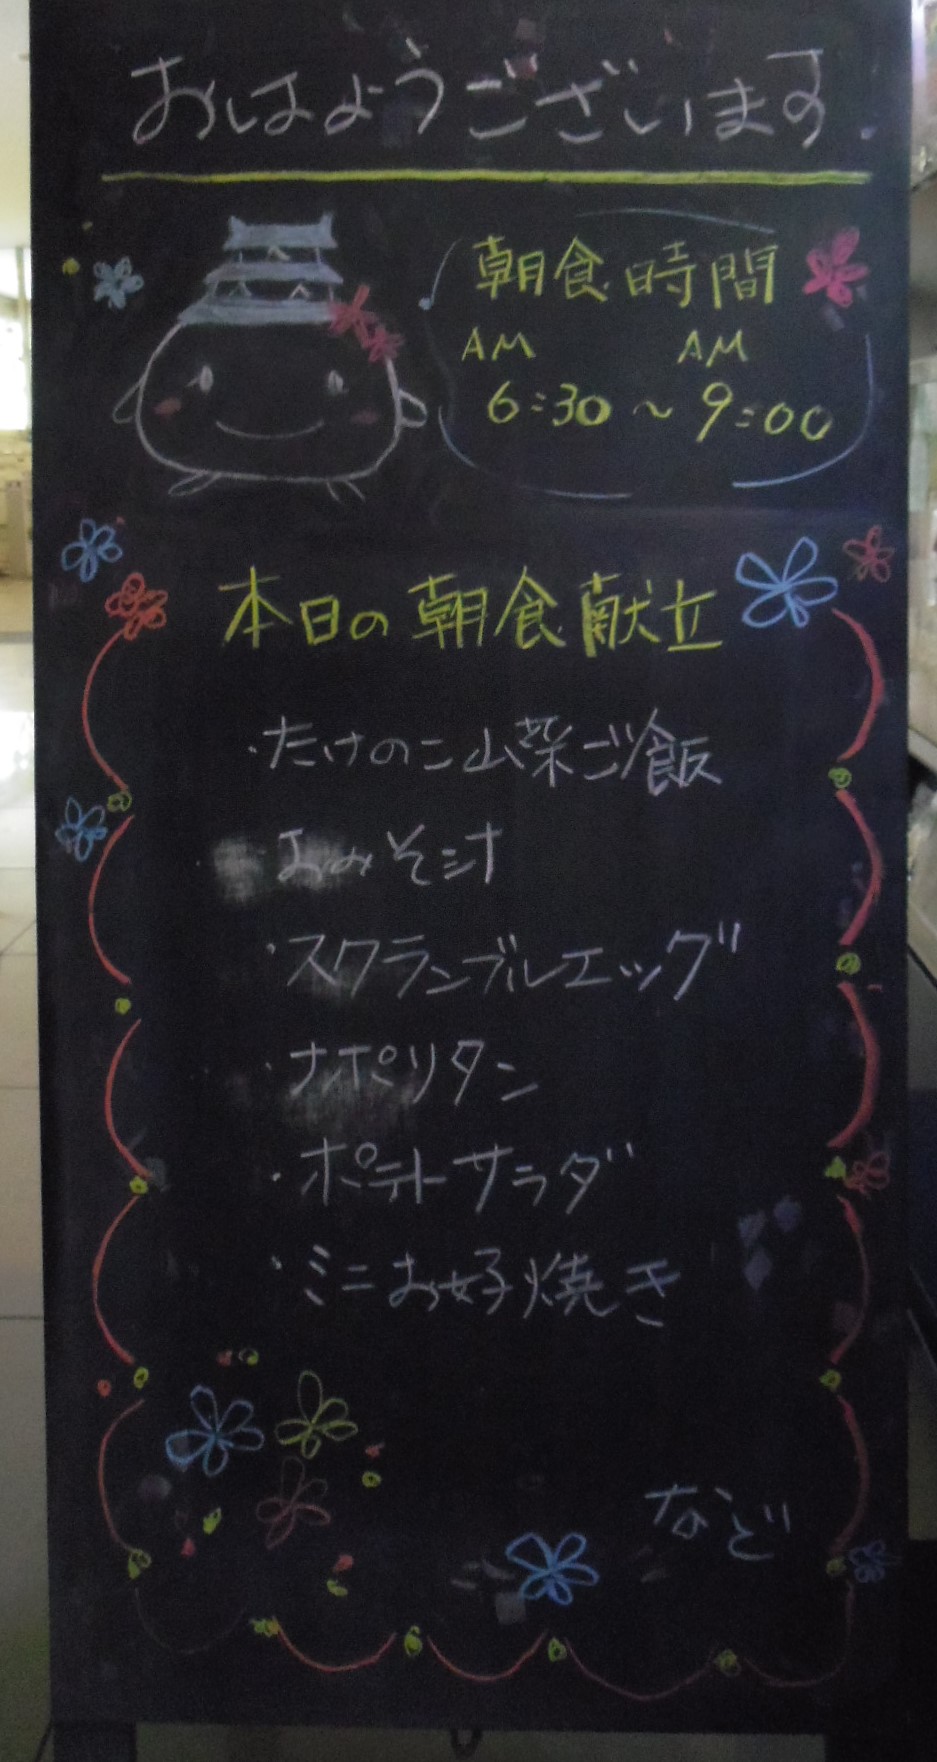 おはようございます.
朝食時間
AM AM
6:30～9:00
本日の朝食献立
・たけのこ山菜ご飯
・おみそ汁
・スクランブルエッグ
・ナポリタン
・ポテトサラダ
・ミニお好焼き
など